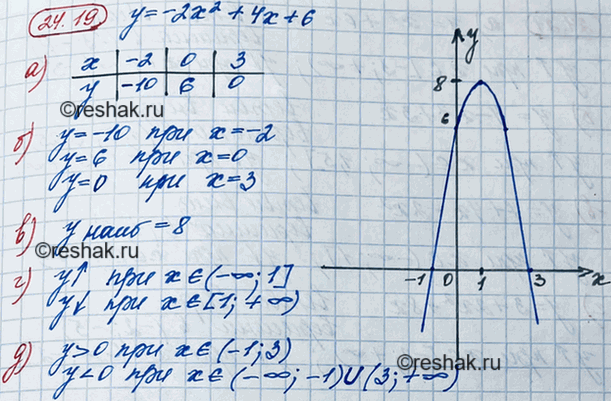 24.19 y=-2x²+4x+6
а) x -2 0 3
y -10 6 0
©reshak.ru
б) y=-10 при x=-2
y=6 при x=0
y=0 при x=3
в) y наиб =8
©reshak.ru
г) y↑ при x∈(-∞;1]
y↓ при x∈[1;+∞)
д) y>0 при x∈(-1;3)
y<0 при x∈(-∞;-1)∪(3;+∞)
y
8
6
-1 0 1 3 x
©reshak.ru